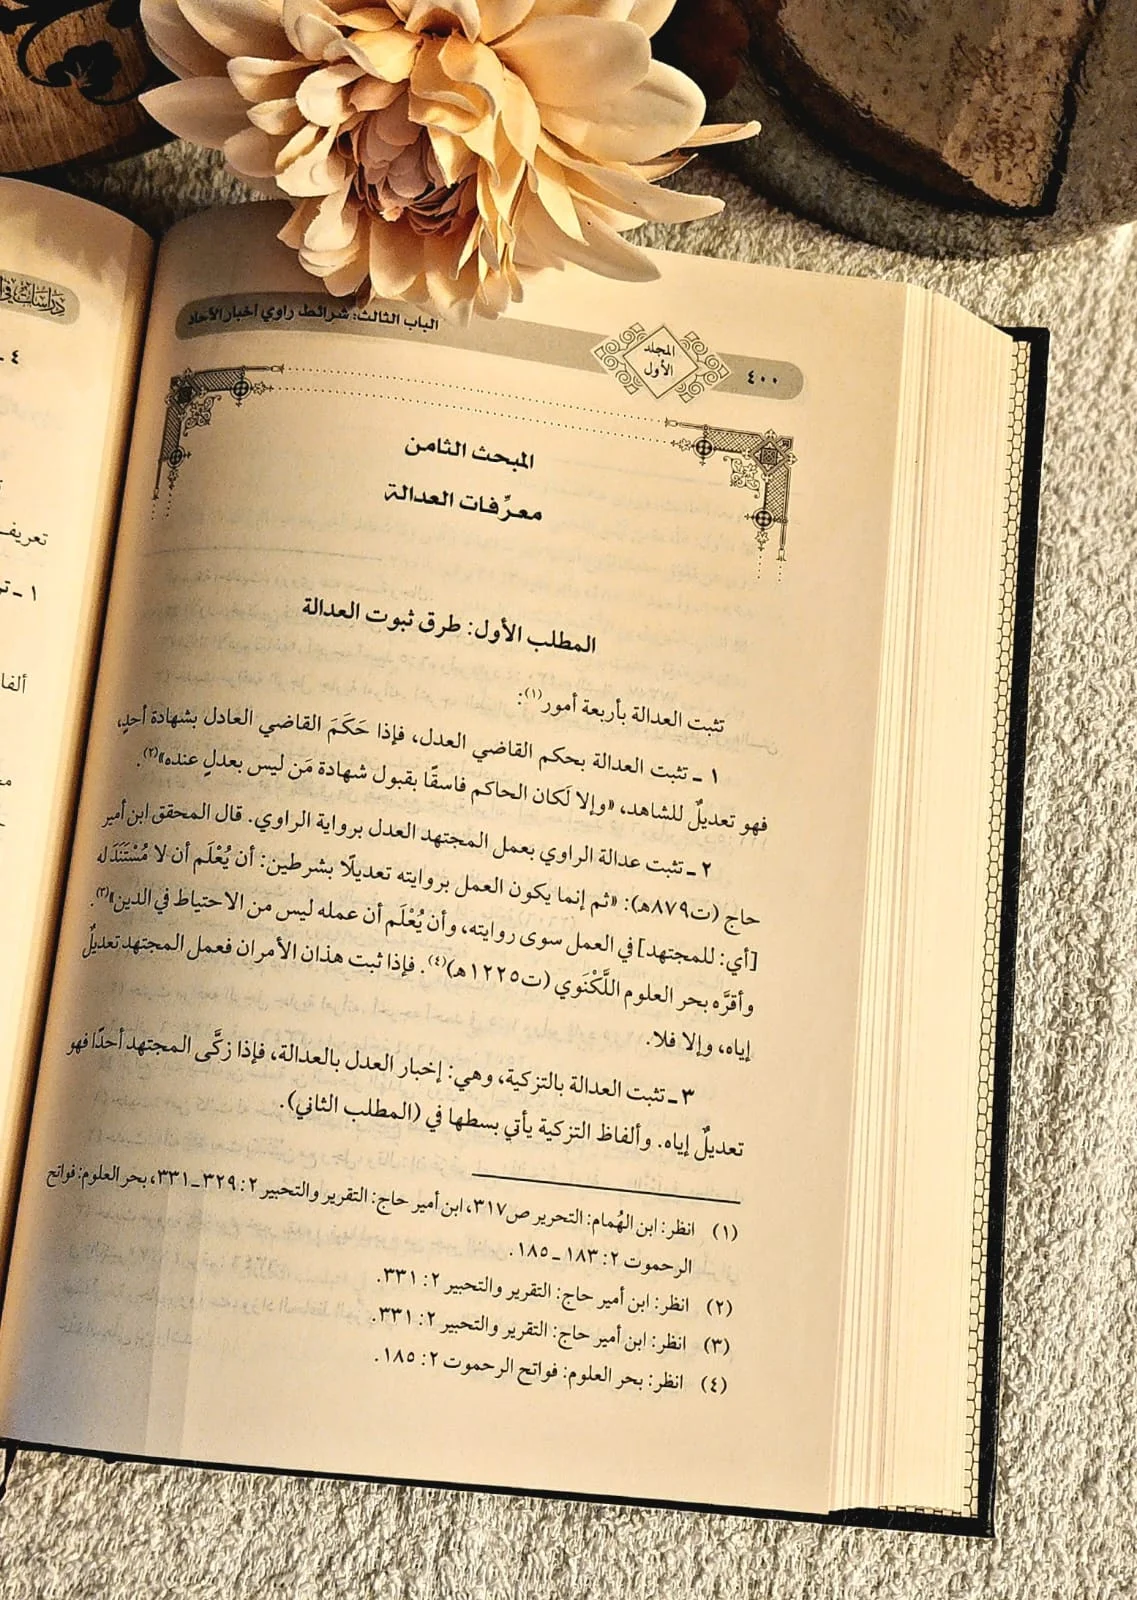 الباب الثالث: شرائط راوي أخبار الآحاد
المجلد
الأول
٤٠٠
المبحث الثامن
معرِّفات العدالة
المطلب الأول: طرق ثبوت العدالة
تثبت العدالة بأربعة أمور(١):
١ ـ تثبت العدالة بحكم القاضي العدل، فإذا حَكَمَ القاضي العادل بشهادة أحدٍ،
فهو تعديلٌ للشاهد، «وإلا لَكان الحاكم فاسقًا بقبول شهادة مَن ليس بعدلٍ عنده»(٢).
٢ ـ تثبت عدالة الراوي بعمل المجتهد العدل برواية الراوي. قال المحقق ابن أمير
حاج (ت٨٧٩هـ): «ثم إنما يكون العمل بروايته تعديلًا بشرطين: أن يُعْلَم أن لا مُسْتَنَدَ له
[أي: للمجتهد] في العمل سوى روايته، وأن يُعْلَم أن عمله ليس من الاحتياط في الدين»(٣).
وأقرَّه بحر العلوم اللَّكْنَوي (ت١٢٢٥هـ)(٤). فإذا ثبت هذان الأمران فعمل المجتهد تعديلٌ
إياه، وإلا فلا.
٣ ـ تثبت العدالة بالتزكية، وهي: إخبار العدل بالعدالة، فإذا زكَّى المجتهد أحدًا فهو
تعديلٌ إياه. وألفاظ التزكية يأتي بسطها في (المطلب الثاني).
(١) انظر: ابن الهُمام: التحرير ص٣١٧، ابن أمير حاج: التقرير والتحبير ٢: ٣٢٩ـ٣٣١، بحر العلوم: فواتح
الرحموت ٢: ١٨٣ ـ ١٨٥.
(٢) انظر: ابن أمير حاج: التقرير والتحبير ٢: ٣٣١.
(٣) انظر: ابن أمير حاج: التقرير والتحبير ٢: ٣٣١.
(٤) انظر: بحر العلوم: فواتح الرحموت ٢: ١٨٥.
دراسات في
٤ ـ
تعريف
١ ـ